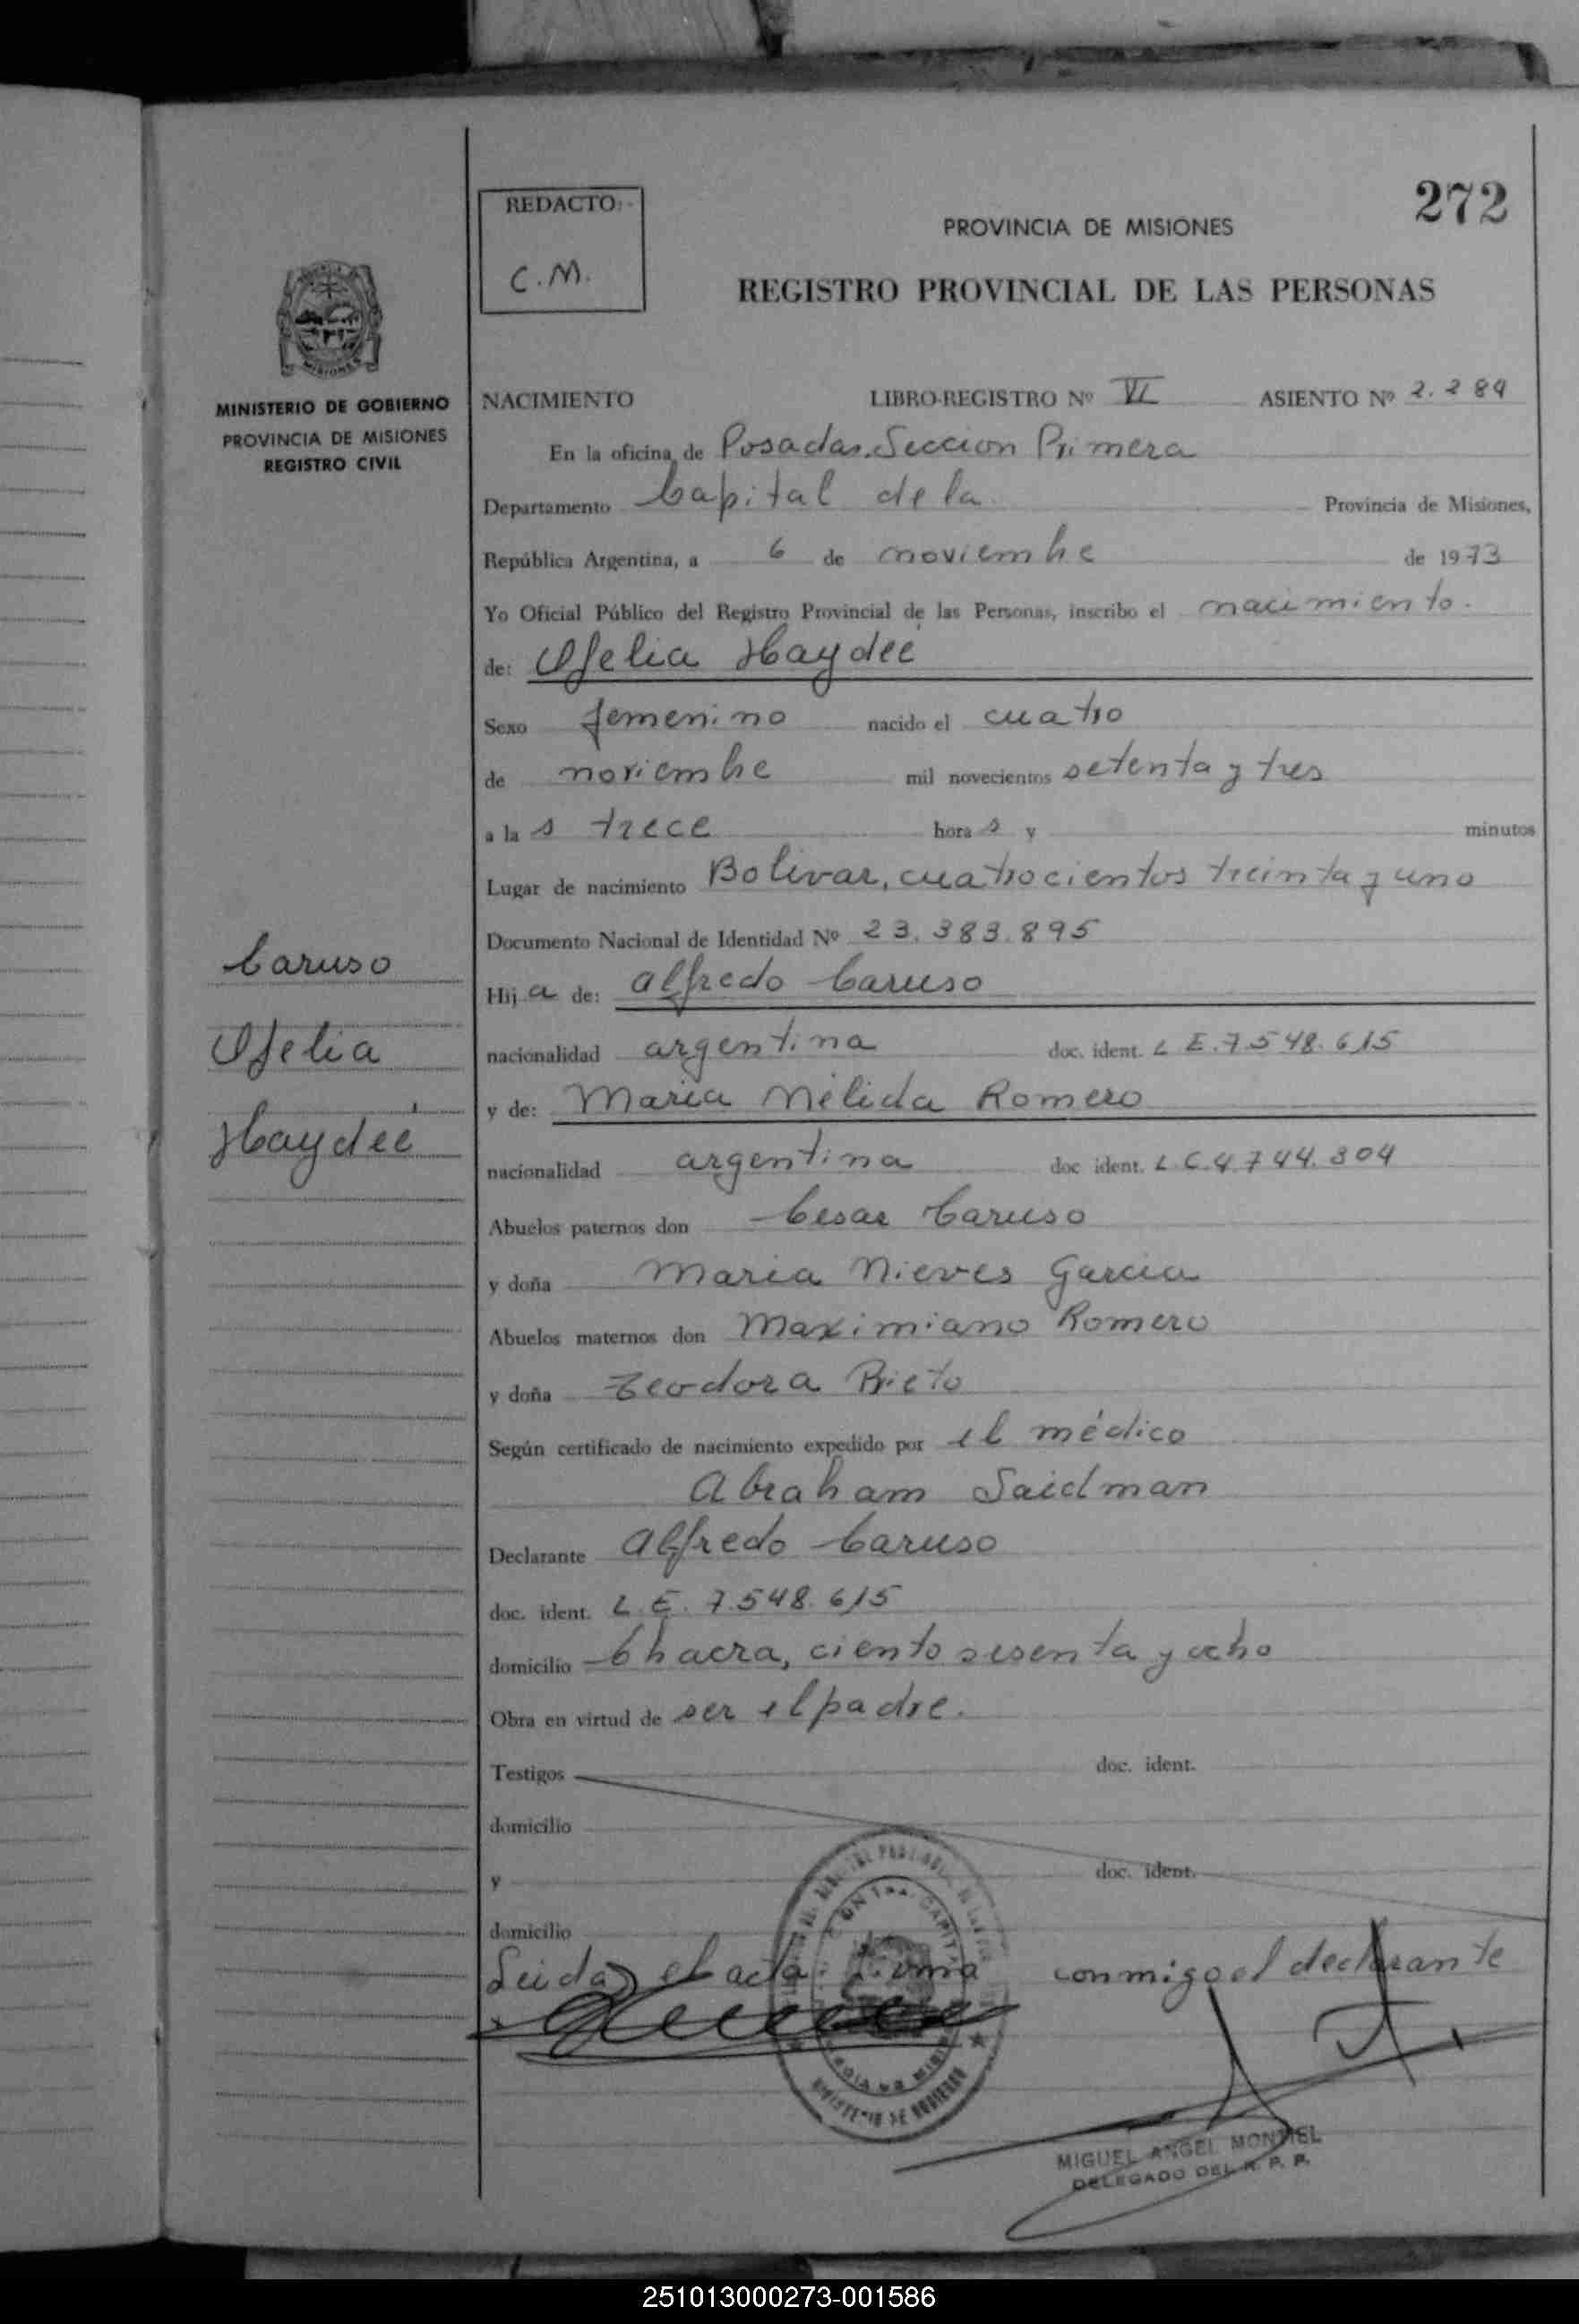 272
REDACTO:-
C.M.
PROVINCIA DE MISIONES
REGISTRO PROVINCIAL DE LAS PERSONAS
MISIONES
MINISTERIO DE GOBIERNO
PROVINCIA DE MISIONES
REGISTRO CIVIL
NACIMIENTO LIBRO-REGISTRO Nº VI ASIENTO Nº 2.289
En la oficina de Posadas. Seccion Primera
Departamento Capital de la Provincia de Misiones,
República Argentina, a 6 de noviembre de 1973
Yo Oficial Público del Registro Provincial de las Personas, inscribo el nacimiento.
de: Ofelia Haydeé
Sexo femenino nacido el cuatro
de noviembre mil novecientos setenta y tres
a la s trece hora s y minutos
Lugar de nacimiento Bolivar, cuatrocientos treinta y uno
Documento Nacional de Identidad Nº 23.383.895
Caruso
Ofelia
Haydeé
Hij a de: Alfredo Caruso
nacionalidad argentina doc. ident. L E.7.548.615
y de: Maria Nélida Romero
nacionalidad argentina doc ident. L.C.4.744.304
Abuelos paternos don Cesar Caruso
y doña Maria Nieves Garcia
Abuelos maternos don Maximiano Romero
y doña Teodora Prieto
Según certificado de nacimiento expedido por el médico
Abraham Saidman
Declarante Alfredo Caruso
doc. ident. L.E. 7.548.615
domicilio Chacra, ciento sesenta y ocho
Obra en virtud de ser el padre.
Testigos doc. ident.
domicilio
y doc. ident.
domicilio
Leida el acta firma conmigo el declarante
MINISTERIO DE GOBIERNO
MIGUEL ANGEL MONTIEL
DELEGADO DEL R. P. P.
251013000273-001586